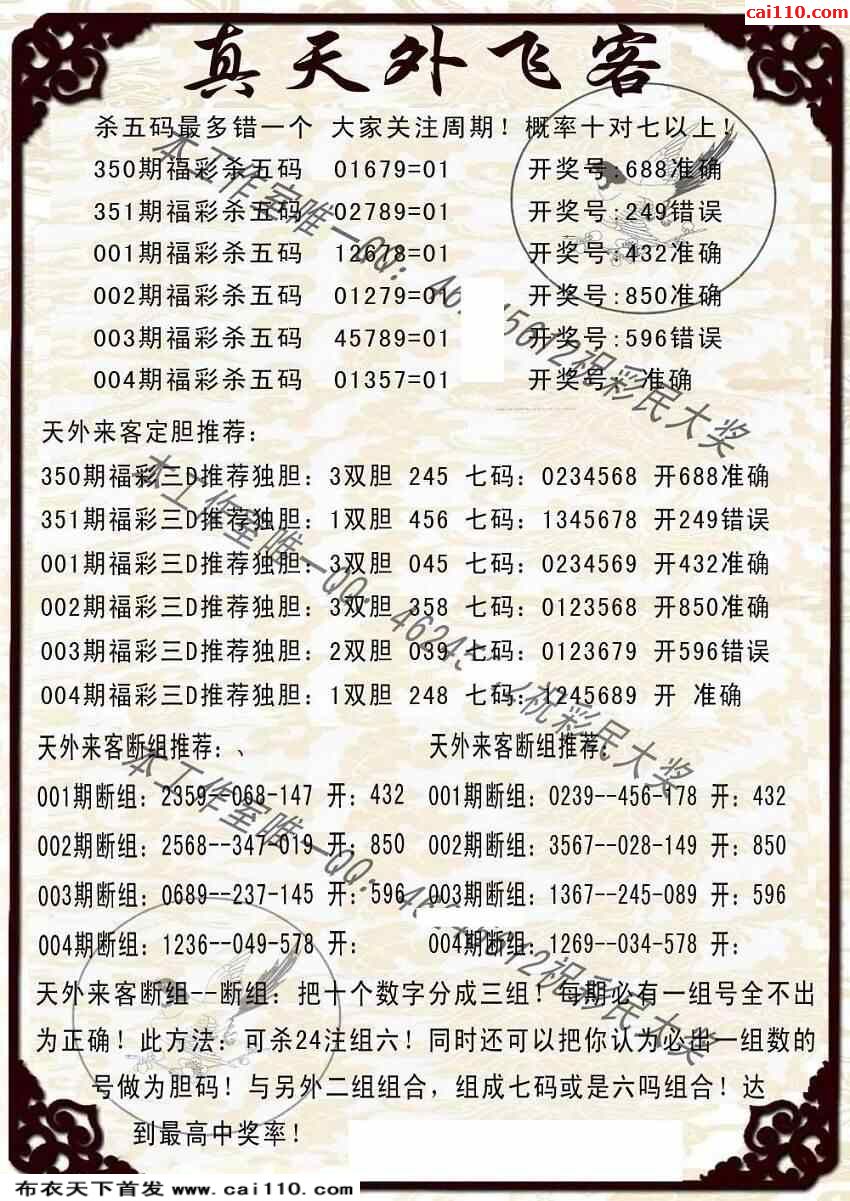 cai110.com
真天外飞客
杀五码最多错一个 大家关注周期！概率十对七以上！
350期福彩杀五码 01679=01 开奖号:688准确
351期福彩杀五码 02789=01 开奖号:249错误
001期福彩杀五码 12678=01 开奖号:432准确
002期福彩杀五码 01279=01 开奖号:850准确
003期福彩杀五码 45789=01 开奖号:596错误
004期福彩杀五码 01357=01 开奖号: 准确
天外来客定胆推荐：
350期福彩三D推荐独胆：3双胆 245 七码：0234568 开688准确
351期福彩三D推荐独胆：1双胆 456 七码：1345678 开249错误
001期福彩三D推荐独胆：3双胆 045 七码：0234569 开432准确
002期福彩三D推荐独胆：3双胆 358 七码：0123568 开850准确
003期福彩三D推荐独胆：2双胆 039 七码：0123679 开596错误
004期福彩三D推荐独胆：1双胆 248 七码：1245689 开 准确
天外来客断组推荐：、 天外来客断组推荐：
001期断组：2359--068-147 开：432 001期断组：0239--456-178 开：432
002期断组：2568--347-019 开：850 002期断组：3567--028-149 开：850
003期断组：0689--237-145 开：596 003期断组：1367--245-089 开：596
004期断组：1236--049-578 开： 004期断组：1269--034-578 开：
天外来客断组--断组：把十个数字分成三组！每期必有一组号全不出
为正确！此方法：可杀24注组六！同时还可以把你认为必出一组数的
号做为胆码！与另外二组组合，组成七码或是六吗组合！达
到最高中奖率！
本工作室唯一QQ：
祝彩民大奖
本工作室唯一QQ：
祝彩民大奖
本工作室唯一QQ：
祝彩民大奖
布衣天下首发 www.cai110.com